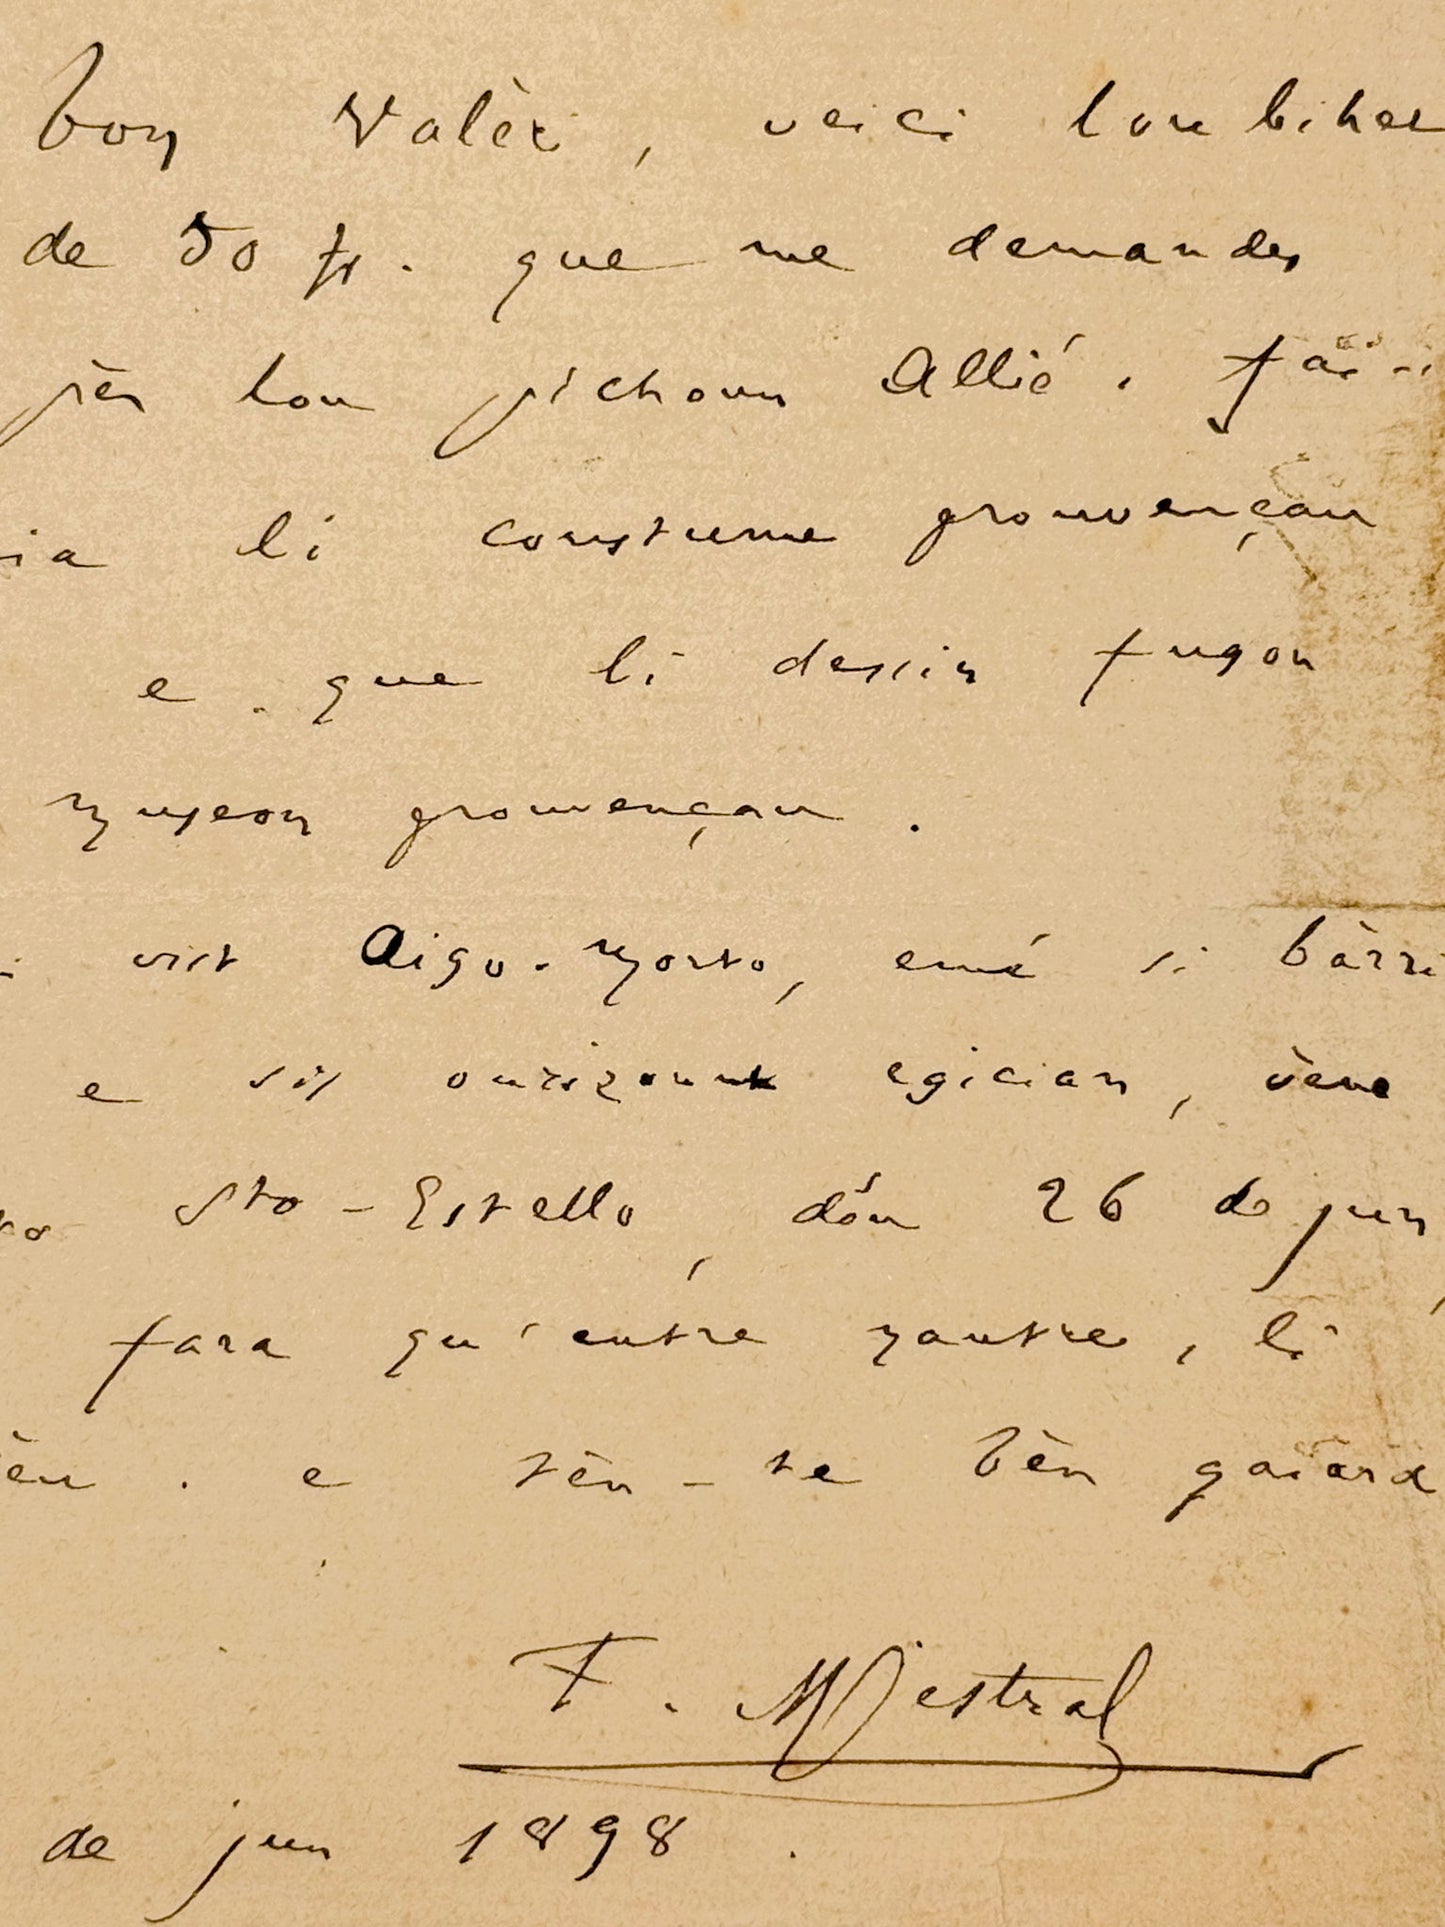 bon Valèri, veici lou bihet
de 50 fr. que me demandes
pèr lou pichoun Allié. fai-
ia li coustume prouvençau
e que li dessin fugon
museon prouvençau.
vist Aigo-Morto, emé si bàrri
e sis ourizount egician, vène
Sto-Estello, dóu 26 de jun,
fara qu'entre nautre, li
e tèn-te bèn gaiard
F. Mistral
de jun 1898.